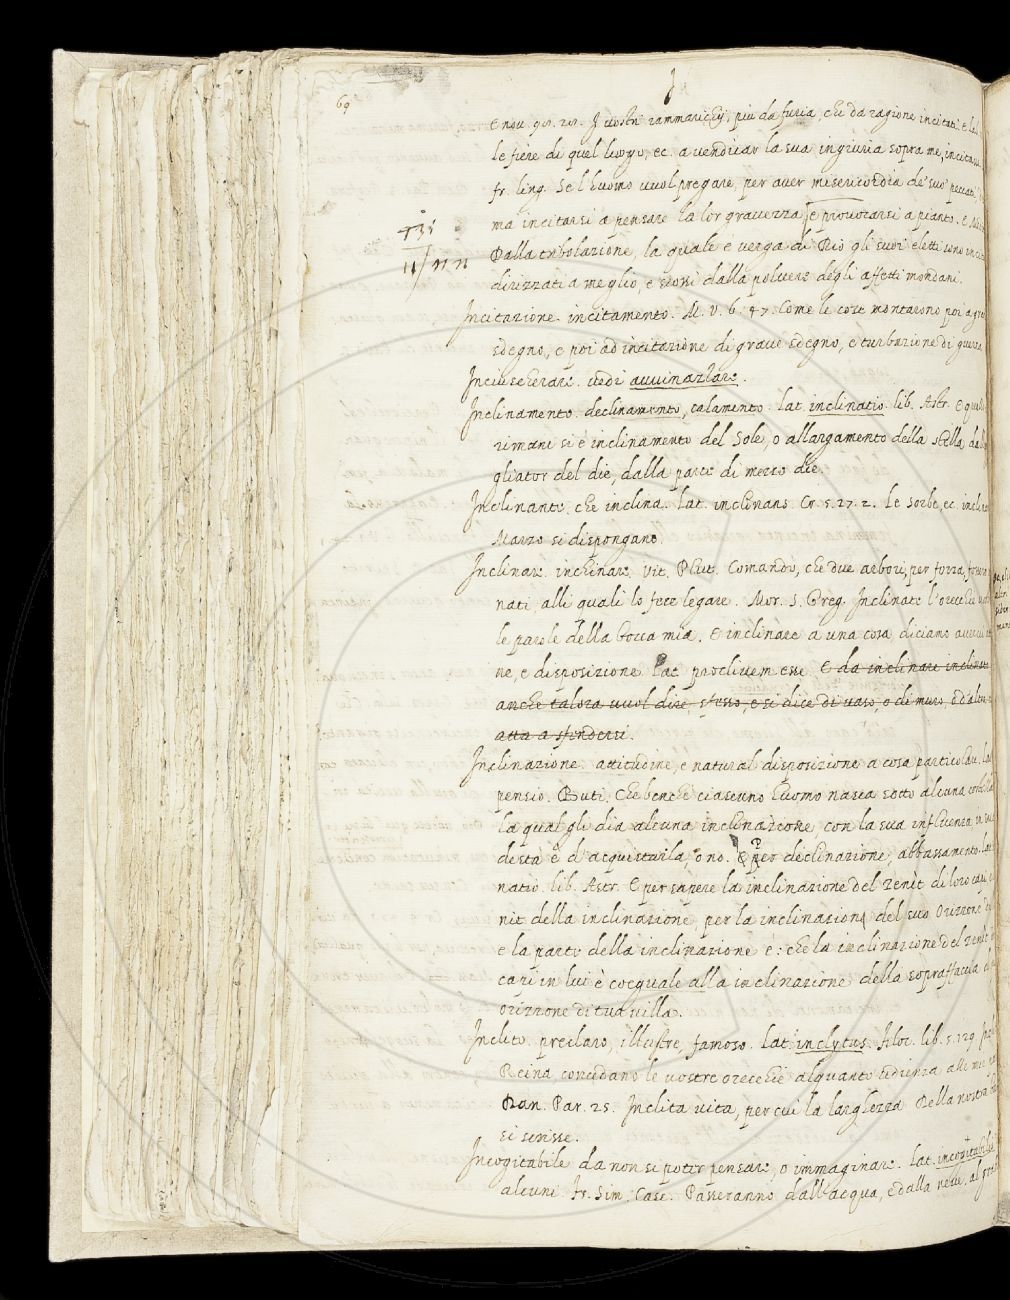 69
I
E nov. 98. 28. I vostri rammarichij, più da furia, che da ragione incitati. E
le fiere di quel luogo, ec. a vendicar la sua ingiuria sopra me, incitasse
fr. Ging. Se l'huomo vuol pregare, per aver misericordia de' suo' peccati,
ma incitarsi a pensare la lor gravezza, e provocarsi a pianto. E
731
11/nn
Dalla tribolazione, la quale è verga di Dio gli suoi eletti sono
dirizzati a meglio, e scossi dalla polvere degli affetti mondani.
Incitazione. incitamento. M. V. 6. 47. Come le cose montarono poi a
sdegno, e poi ad incitazione di grave sdegno, e turbazione di guerra
Inciuscherare. vedi avvinazzare.
Inclinamento. declinamento, calamento. lat. inclinatio. lib. Astr. E
rimani si è inclinamento del Sole, o allargamento della stella
gliator del die, dalla parte di mezzo die.
Inclinante. che inclina. lat. inclinans. Cr. 5. 27. 2. Le Sorbe, ec.
Marzo si dispongano.
Inclinare. inchinare. Vit. Plut. Comandò, che due arbori, per forza,
nati alli quali lo fece legare. Mor. S. Greg. Inclinate l'orecchie
le parole della bocca mia. E inclinare a una cosa, diciamo
ne, e disposizione. lat. proclivem esse. E da inclinare
anche talora vuol dire, stesso, e si dice di vaso, o di muro,
atta a fendersi.
Inclinazione. attitudine, e natural disposizione a cosa particolare.
pensio. Buti. Che benchè ciascuno huomo nasca sotto alcuna
la qual gli dia alcuna inclinazione, con la sua influenza
destà è d'acquistarla, o no. E per declinazione, abbassamento.
natio. lib. Astr. E per sapere la inclinazione del zenit di loro
nit della inclinazione, per la inclinazion del suo Orizzone
e la parte della inclinazione è: che la inclinazione del zenit
capi in lui è coequale alla inclinazione della sopraffaccia
orizzone di tua villa.
Inclito. preclaro, illustre, famoso. lat. inclytus. Filoc. lib. 5. 129.
Reina, concedano le vostre orecchie alquanto udienza alle
Dan. Par. 25. Inclita vita, per cui la larghezza Della nostra
si scrisse.
Incogitabile. da non si poter pensare, o immaginare. lat. incogitabilis
alcuni. Fr. Sim. Casc. Passeranno dall'acqua, e dalla neve, al